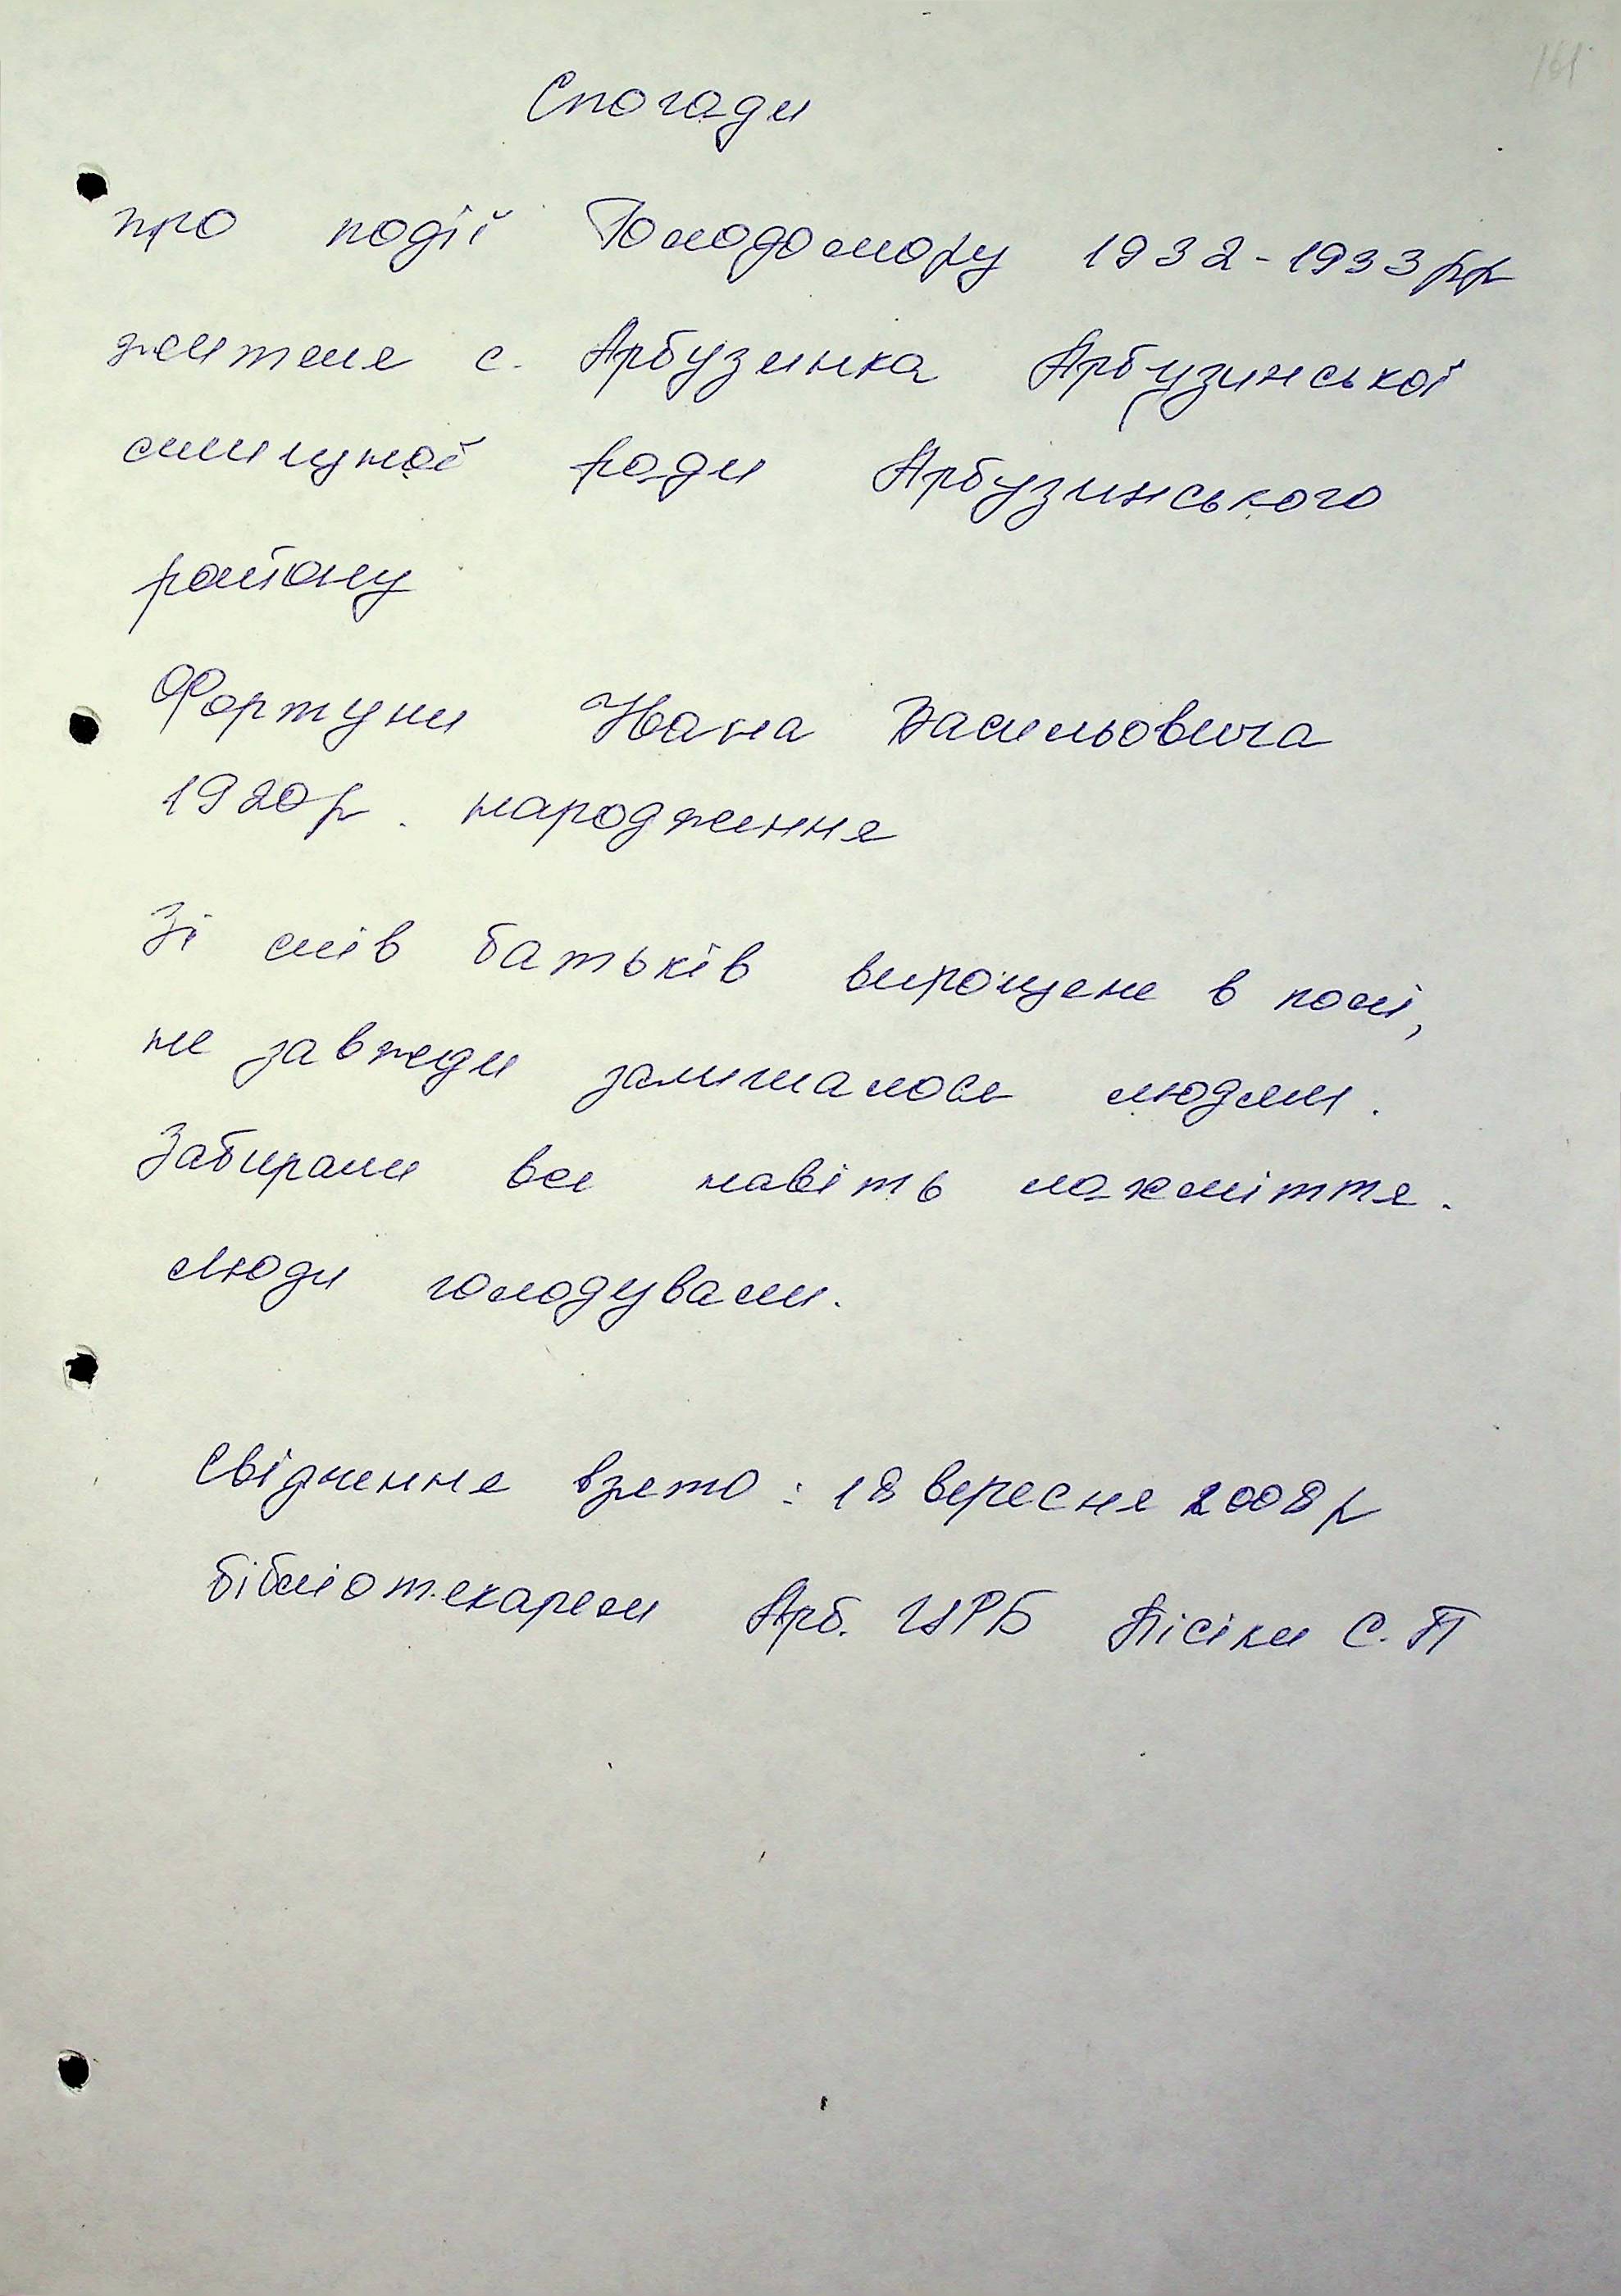 161
Спогади
про події Голодомору 1932-1933рр
жителя с. Арбузинка Арбузинської
селищної ради Арбузинського
району
Фортуни Івана Васильовича
1920р. народження
Зі слів батьків вирощене в полі,
не завжди залишалось людям.
Забирали все навіть лахміття.
Люди голодували.
Свідчення взято: 18 вересня 2008р
бібліотекарем Арб. ЦРБ Лісіки С.П